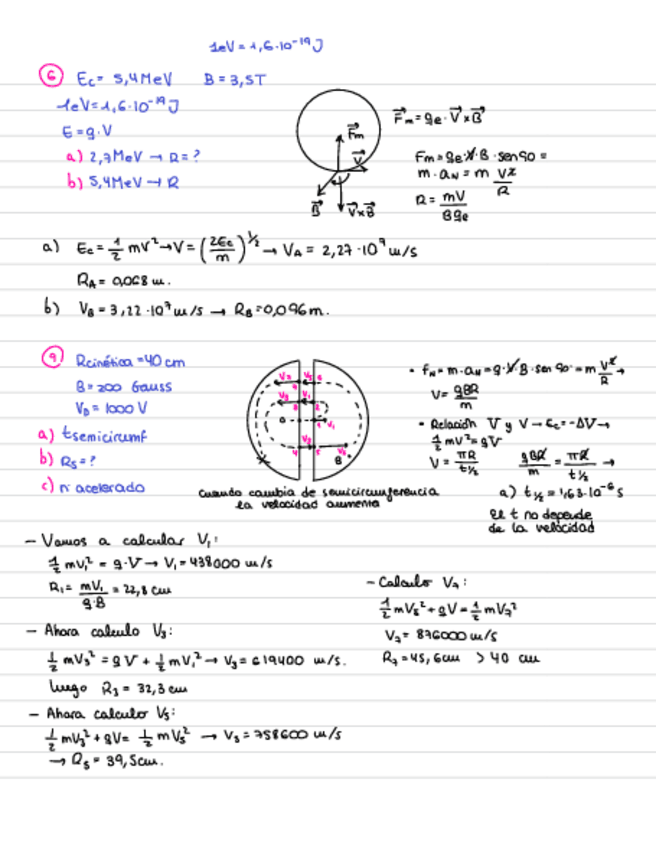 1eV = 1,6·10⁻¹⁹J
⑥ Ec = 5,4 MeV B = 3,5T
1eV = 1,6·10⁻¹⁹J
E = q·V
a) 2,7MeV → R = ?
b) 5,4MeV → R
F⃗m
V⃗
B⃗ V⃗xB⃗
F⃗m = qe·V⃗xB⃗
Fm = qe·V·B·sen90 =
m·aN = m V²/R
R = mV/Bqe
a) Ec = 1/2 mV² → V = (2Ec/m)^1/2 → VA = 2,27·10⁷ m/s
RA = 0,068 m.
b) VB = 3,22·10⁷ m/s → RB = 0,096 m.
⑨ Rcinética = 40 cm
B = 200 Gauss
V0 = 1000 V
a) tsemicircunf
b) RS = ?
c) nº acelerado
cuando cambia de semicircunferencia
la velocidad aumenta
• FN = m·aN = q·V·B·sen 90 = m V²/R →
V = qBR/m
• Relación V y V → Ec = -ΔV →
1/2 mV² = qV
V = πR/t½ qBR/m = πR/t½ →
a) t½ = 1,63·10⁻⁶ s
El t no depende
de la velocidad
- Vamos a calcular V₁:
1/2 mV₁² = q·V → V₁ = 438000 m/s
R₁ = mV₁/q·B = 22,8 cm
- Ahora calculo V₃:
1/2 mV₃² = qV + 1/2 mV₁² → V₃ = 619400 m/s.
luego R₃ = 32,3 cm
- Ahora calculo V₅:
1/2 mV₃² + qV = 1/2 mV₅² → V₅ = 758600 m/s
→ R₅ = 39,5cm.
- Calculo V₇:
1/2 mV₅² + qV = 1/2 mV₇²
V₇ = 876000 m/s
R₇ = 45,6cm > 40 cm